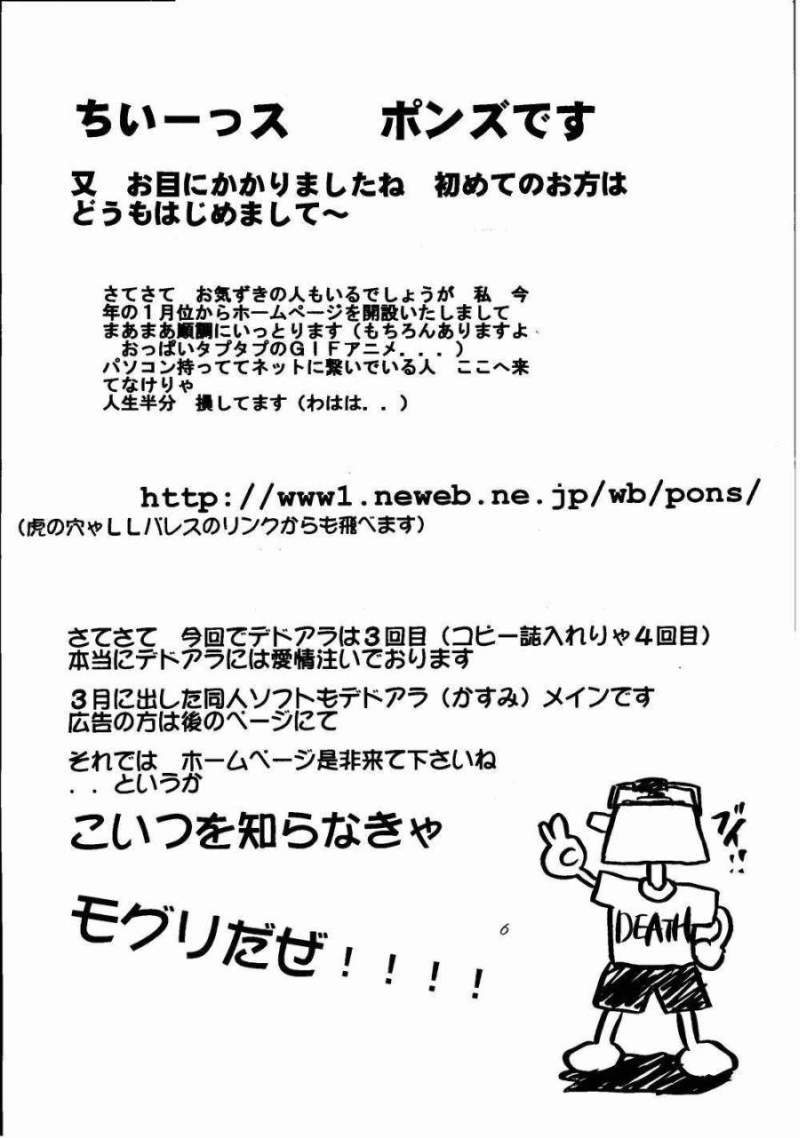 ちいーっス　　ポンズです
又　お目にかかりましたね　初めてのお方は
どうもはじめまして～
さてさて　お気ずきの人もいるでしょうが　私　今
年の１月位からホームページを開設いたしまして
まあまあ順調にいっとります（もちろんありますよ
　おっぱいタプタプのＧＩＦアニメ．．．）
パソコン持っててネットに繋いでいる人　ここへ来
てなけりゃ
人生半分　損してます（わはは．．）
http://www1.neweb.ne.jp/wb/pons/
（虎の穴ゃＬＬパレスのリンクからも飛べます）
さてさて　今回でデドアラは３回目（コピー誌入れりゃ４回目）
本当にデドアラには愛情注いでおります
３月に出した同人ソフトもデドアラ（かすみ）メインです
広告の方は後のページにて
それでは　ホームページ是非来て下さいね
．．というか
こいつを知らなきゃ
モグリだぜ！！！！
ブイ!!
DEATH
6